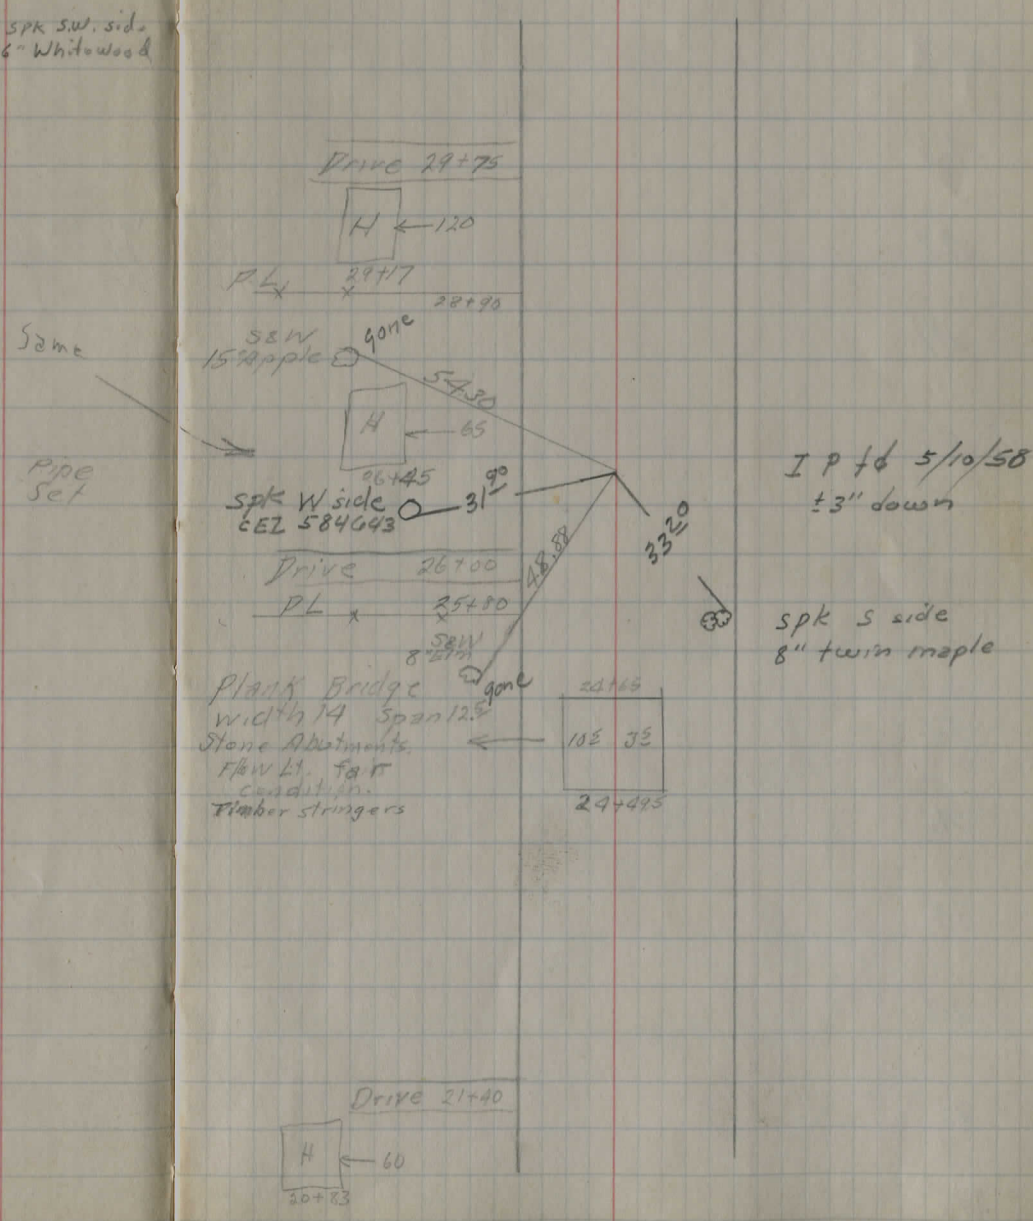 spk s.w. side
6" Whitewood
Drive 29+75
H
120
29+17
P.L.
28+90
gone
S&W
15" Apple
54.30
Same
H
65
26+45
Pipe
Set
spk W side
31 90
I P fd 5/10/58
± 3" down
33 20
Drive 26+00
48.88
PL 25+80
S&W
8" Elm
gone
spk S side
8" twin maple
Plank Bridge
Width 14 Span 12.5
Stone Abutments.
Flow Lt. fair
condition.
Timber stringers
24+65
10 5 3 5
24+49.5
Drive 21+40
H
60
20+83